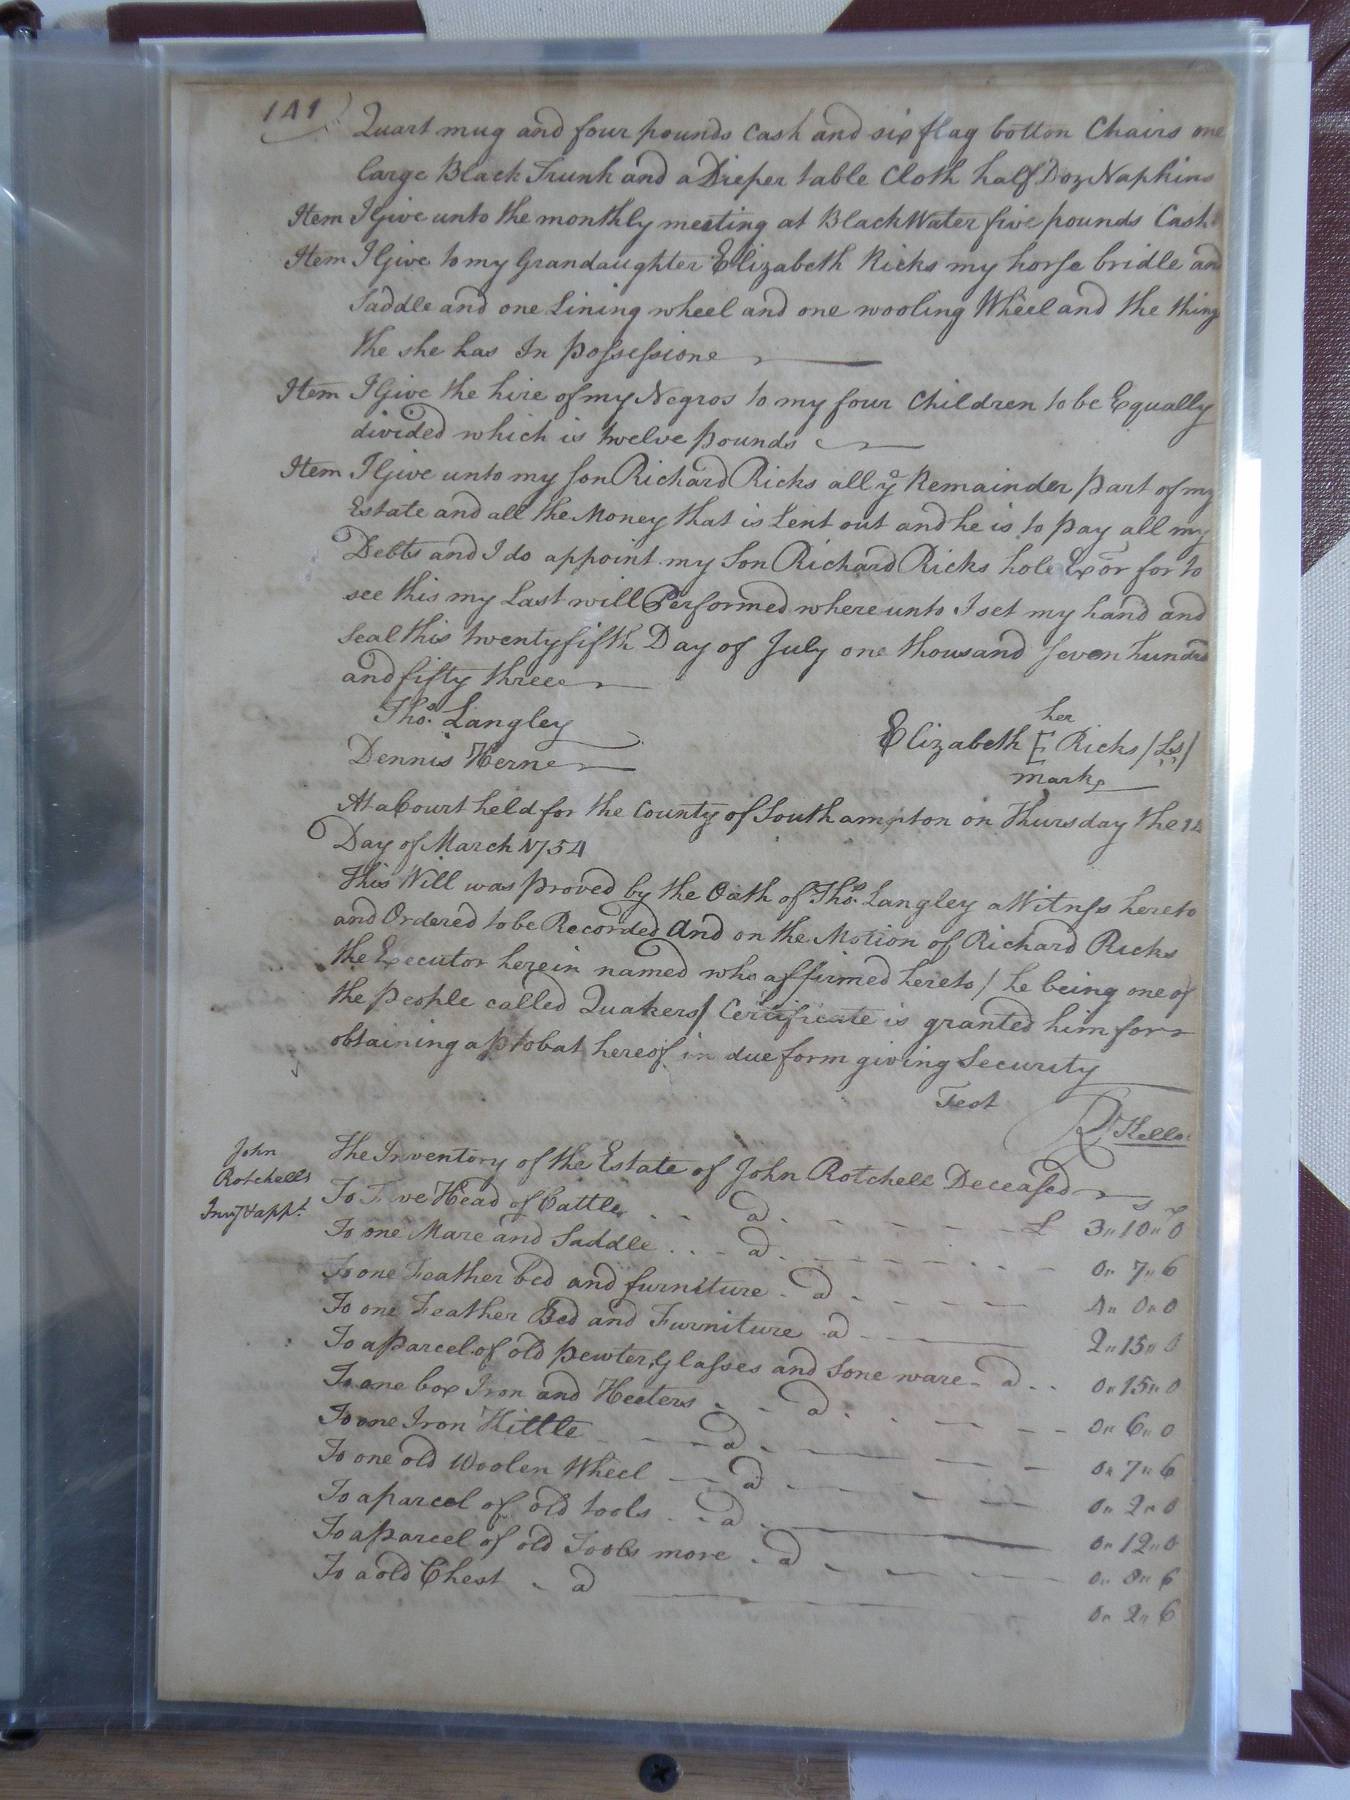 141
Quart mug and four pounds Cash and six flag botton Chairs one
large Black Trunk and a Dieper table Cloth half Doz Napkins
Item I Give unto the monthly meeting at Black Water five pounds Cash
Item I Give to my Grandaughter Elizabeth Ricks my horse bridle and
Saddle and one Lining wheel and one wooling Wheel and the thing
the she has In possessione
Item I Give the hire of my Negros to my four Children to be Equally
divided which is twelve pounds
Item I Give unto my son Richard Ricks all ye Remainder part of my
Estate and all the Money that is Lent out and he is to pay all my
Debts and I do appoint my Son Richard Ricks hole Exor for to
see this my Last will Performed where unto I set my hand and
Seal this twenty fifth Day of July one thousand Seven hundred
and fifty three
Thos. Langley
Dennis Herne
her
Elizabeth E Ricks (Ls)
mark
At a Court held for the County of Southampton on Thursday the 14
Day of March 1754
This Will was proved by the Oath of Thos. Langley a Witness hereto
and Ordered to be Recorded And on the Motion of Richard Ricks
the Executor herein named who affirmed hereto / he being one of
the people called Quakers / Certificate is granted him for
obtaining a probat hereof in due form giving Security
Test
R Kello
John
Rotchells
Invy & appt.
The Inventory of the Estate of John Rotchell Deceased
To Five Head of Cattle a £ 3 " 10 " 0
To one Mare and Saddle a 0 " 7 " 6
To one Feather bed and furniture a 4 " 0 " 0
To one Feather Bed and Furniture a 2 " 15 " 0
To a Parcel of old pewter, Glasses and Sone ware a 0 " 15 " 0
To one box Iron and Heeters a 0 " 6 " 0
To one Iron Kittle a 0 " 7 " 6
To one old Woolen Wheel a 0 " 2 " 0
To a parcel of old tools a 0 " 12 " 0
To a Parcel of old Tools more a 0 " 8 " 6
To a old Chest a 0 " 2 " 6